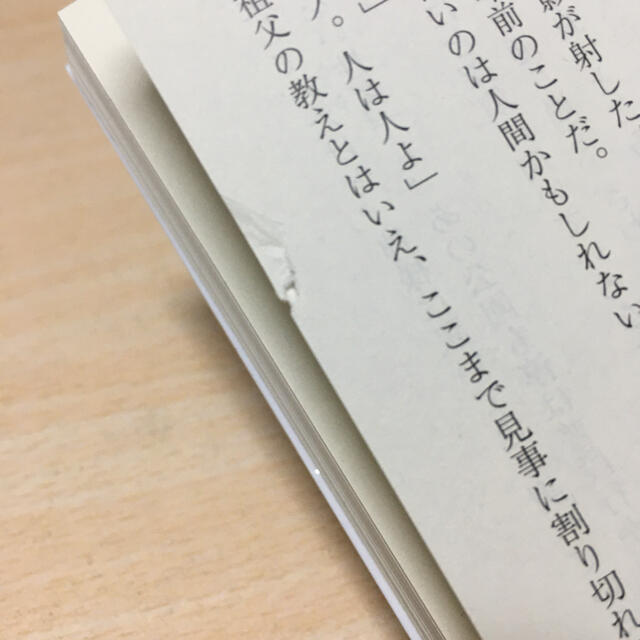 影が射した
前のことだ。
いのは人間かもしれない
」
う。人は人よ」
祖父の教えとはいえ、ここまで見事に割り切れ